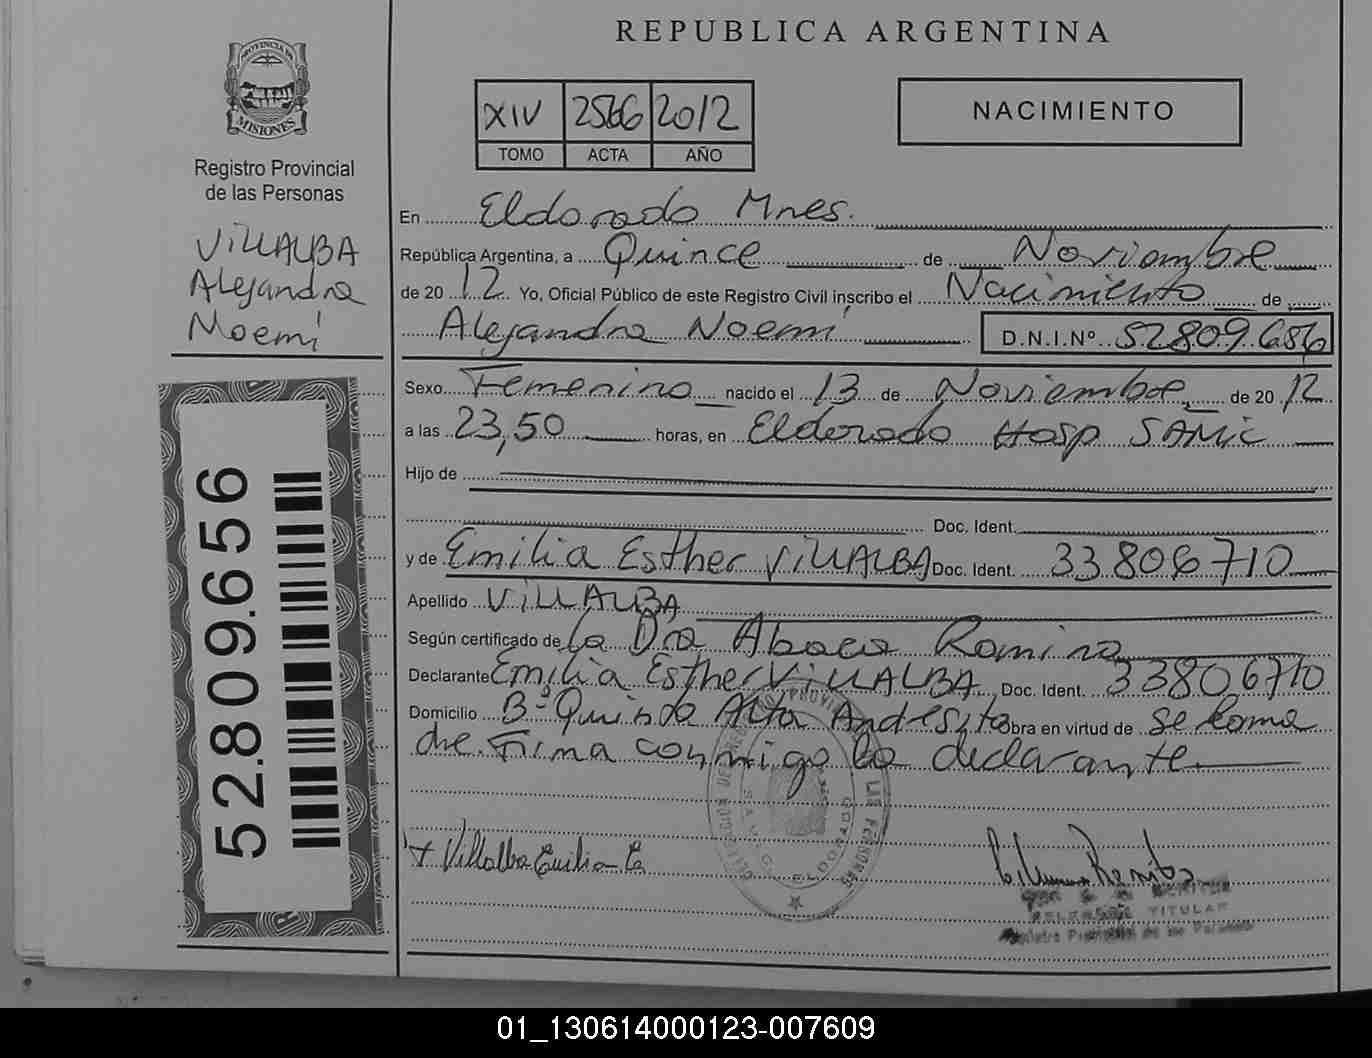 REPUBLICA ARGENTINA
PROVINCIA DE
MISIONES
Registro Provincial
de las Personas
VILLALBA
Alejandra
Noemí
XIV 2566 2012
TOMO ACTA AÑO
NACIMIENTO
En Eldorado Mnes.
República Argentina, a Quince de Noviembre
de 2012 Yo, Oficial Público de este Registro Civil inscribo el Nacimiento de
Alejandra Noemí D.N.I.Nº 52809.656
Sexo Femenino nacido el 13 de Noviembre de 2012
a las 23,50 horas, en Eldorado Hosp SAMIC
Hijo de
Doc. Ident.
y de Emilia Esther VILLALBA Doc. Ident. 33806710
Apellido VILLALBA
Según certificado de La Dra Abaca Romina
Declarante Emilia Esther VILLALBA Doc. Ident. 33806710
Domicilio Bº Quinta Alta Andresito obra en virtud de se loma
dre. Firma conmigo la declarante
Villalba Emilia E
Benitez
TITULAR
52.809.656
ELDORADO
LAS PERSONAS
01_130614000123-007609